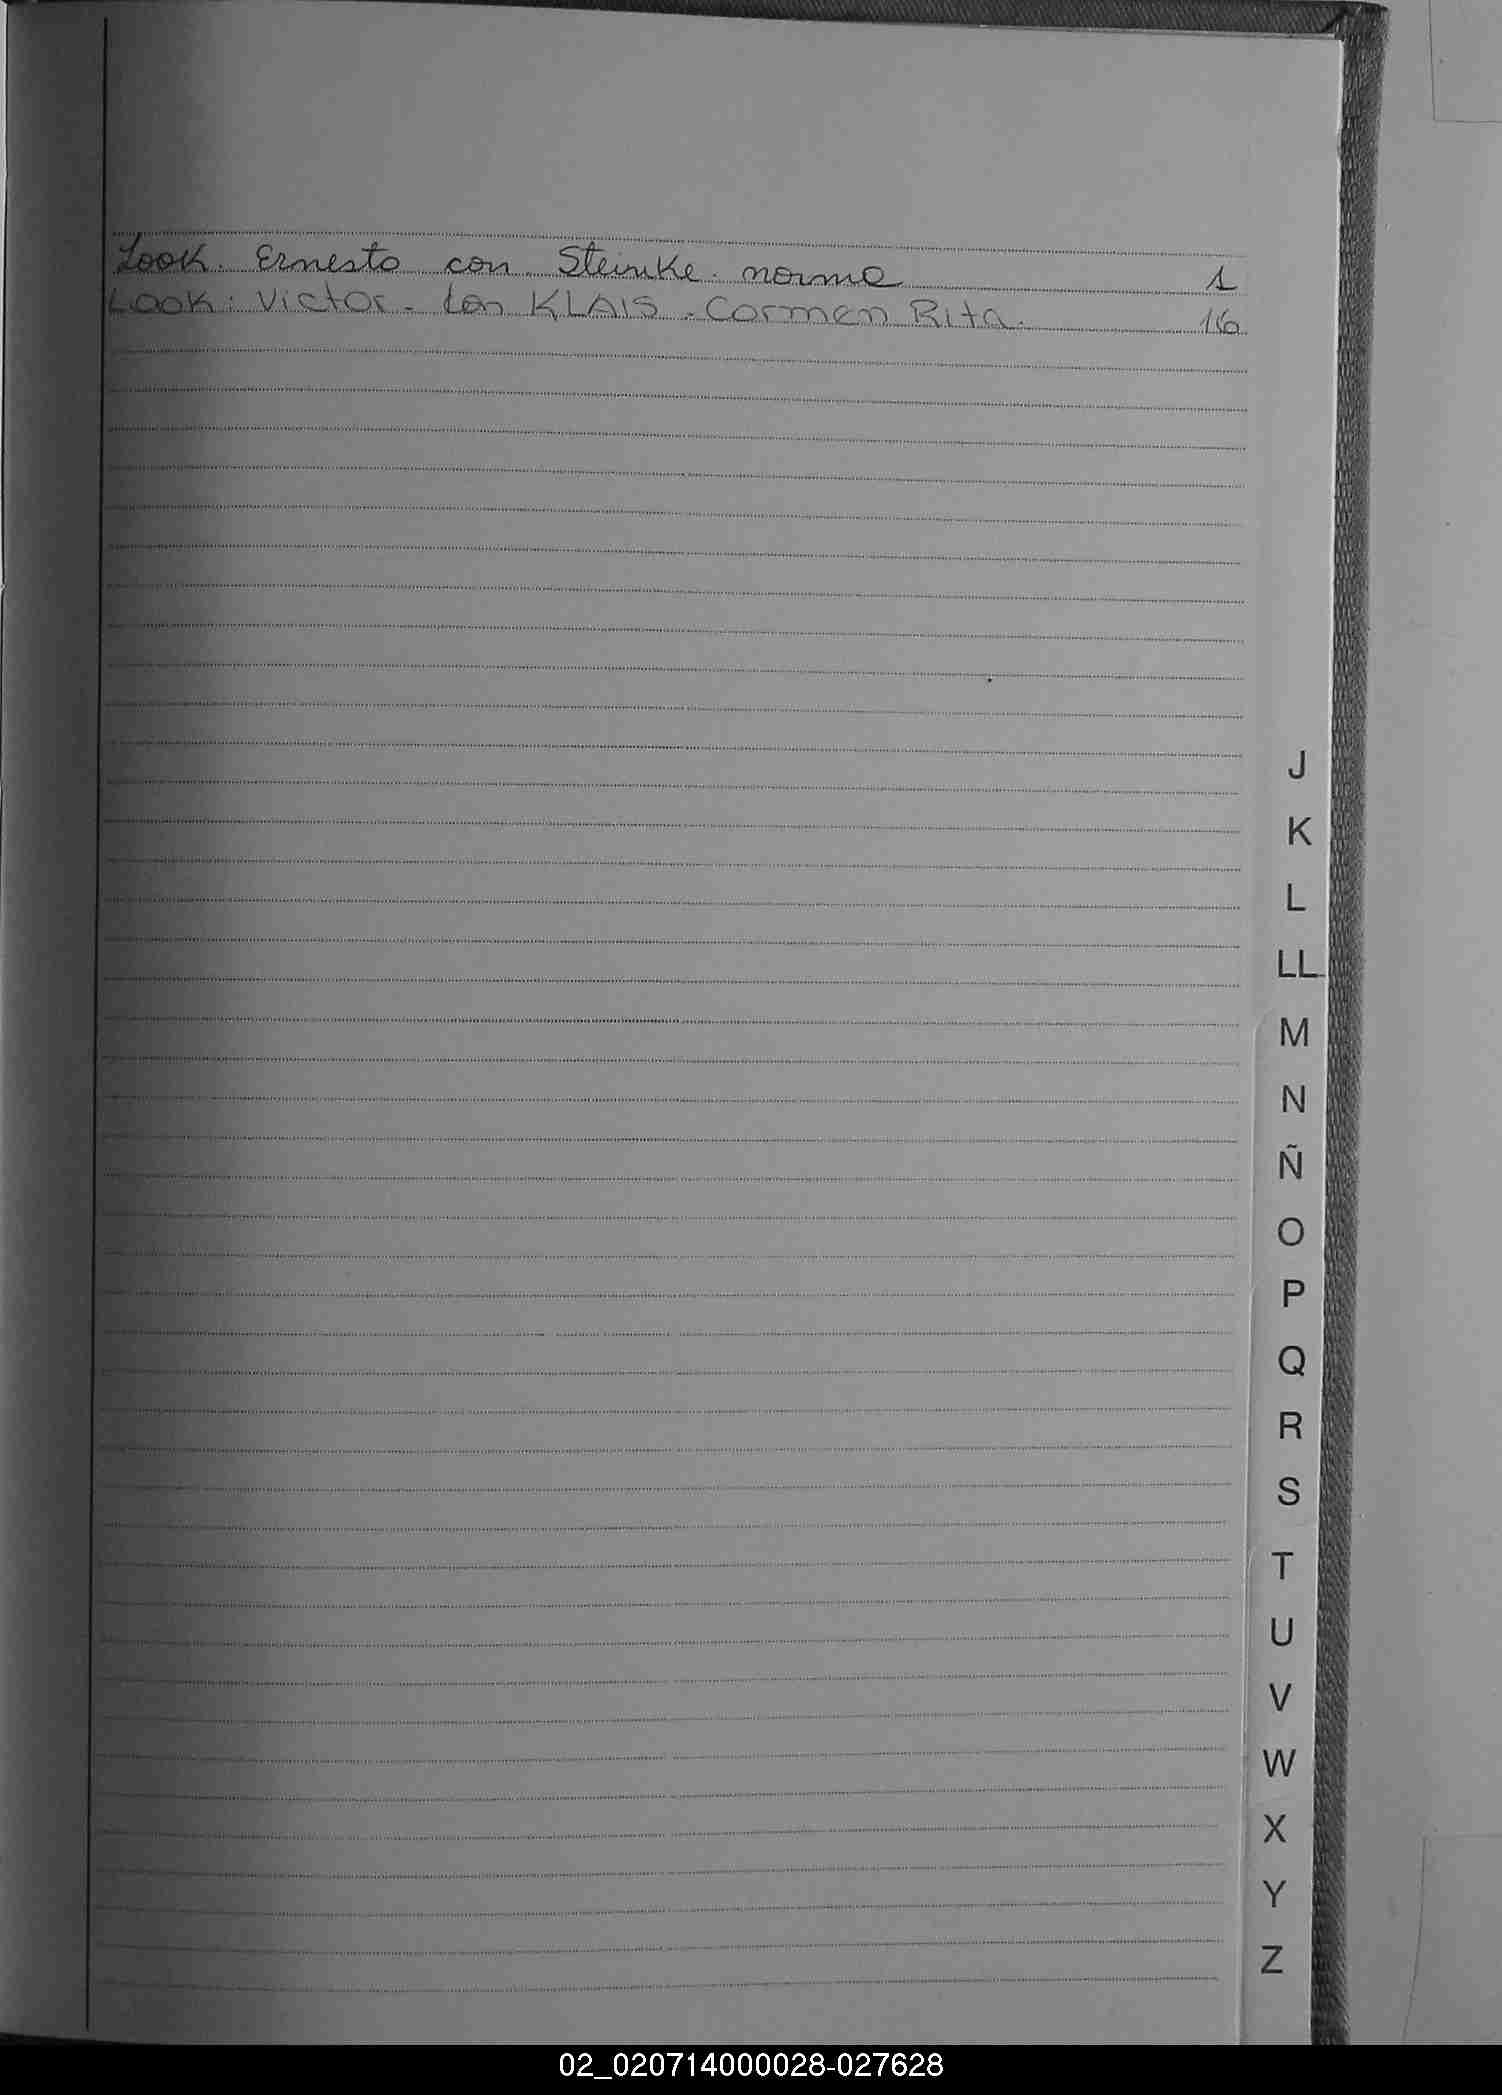 Look. Ernesto con Steinke. norma 1
Look: Victor. Con KLAIS. Carmen Rita. 16
J
K
L
LL
M
N
Ñ
O
P
Q
R
S
T
U
V
W
X
Y
Z
02_020714000028-027628